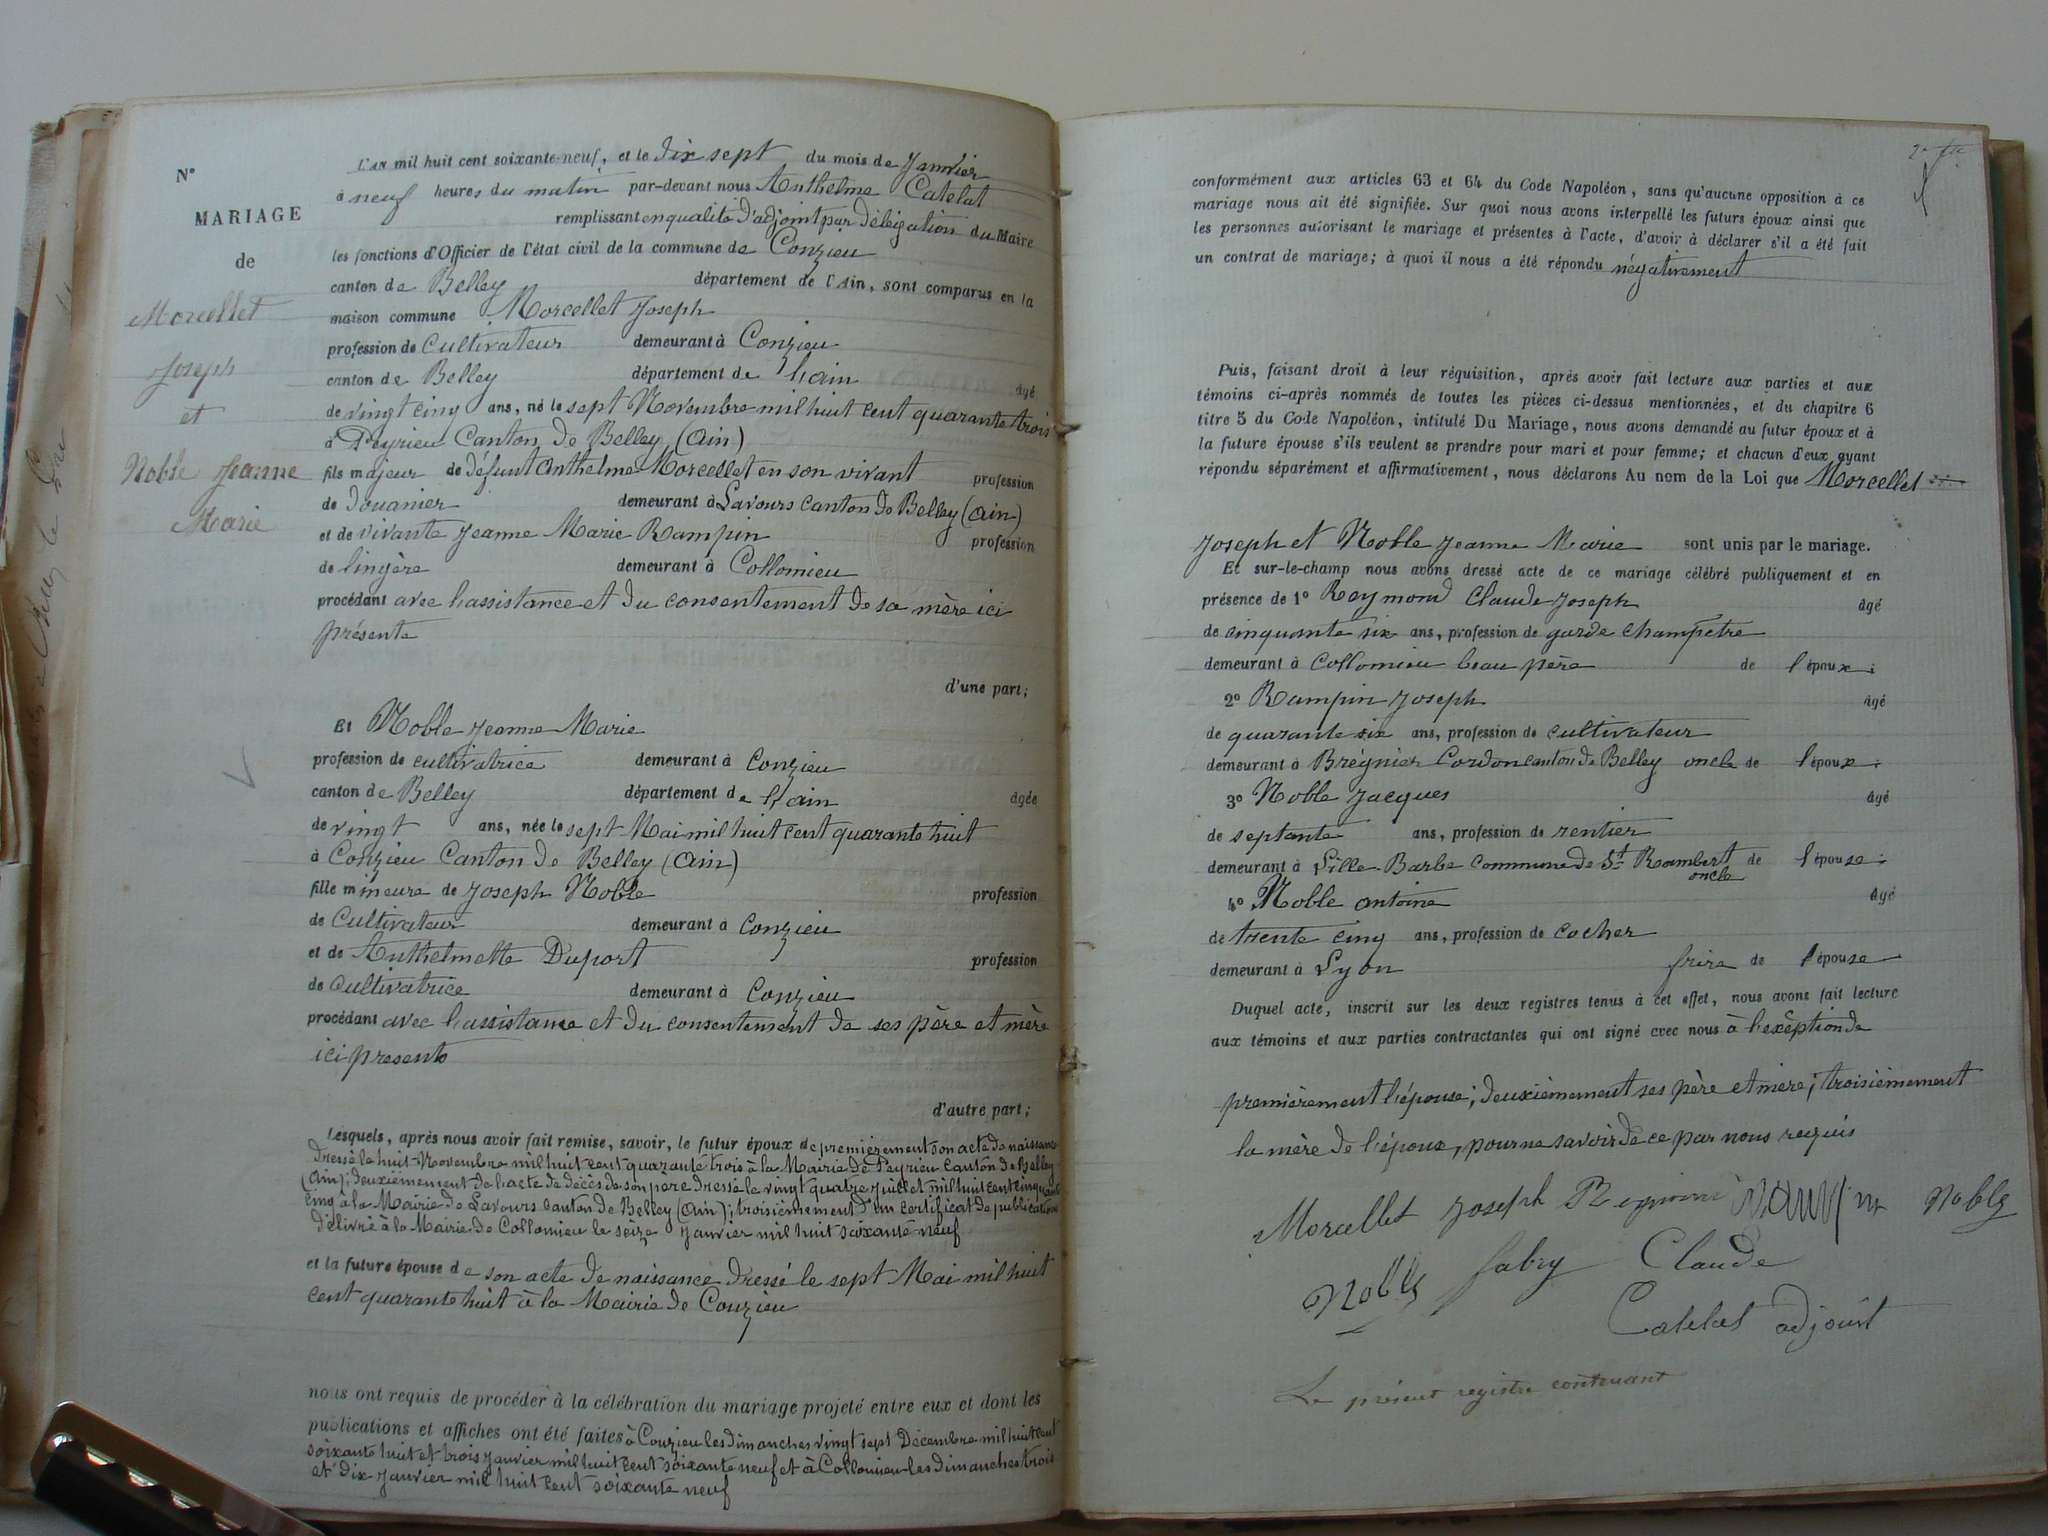 N°
MARIAGE
de
Morcellet
Joseph
et
Noble Jeanne
Marie
L'an mil huit cent soixante-neuf, et le dix sept du mois de Janvier
à neuf heures du matin par-devant nous Anthelme Catelat
remplissant en qualité d'adjoint par délégation du Maire
les fonctions d'Officier de l'état civil de la commune de Conzieu
canton de Belley département de l'Ain, sont comparus en la
maison commune Morcellet Joseph
profession de Cultivateur demeurant à Conzieu
canton de Belley département de l'ain âgé
de vingt cinq ans, né le sept Novembre mil huit cent quarante trois
à Peyrieu Canton de Belley (Ain)
fils majeur de défunt Anthelme Morcellet en son vivant profession
de Douanier demeurant à Lavours Canton de Belley (Ain)
et de vivante Jeanne Marie Rampin profession
de lingère demeurant à Collomieu
procédant avec l'assistance et du consentement de sa mère ici
présente
d'une part;
Et Noble Jeanne Marie
profession de cultivatrice demeurant à Conzieu
canton de Belley département de l'ain âgée
de vingt ans, née le sept Mai mil huit cent quarante huit
à Conzieu Canton de Belley (Ain)
fille mineure de Joseph Noble profession
de Cultivateur demeurant à Conzieu
et de Anthelmette Duport profession
de Cultivatrice demeurant à Conzieu
procédant avec l'assistance et du consentement de ses père et mère
ici présents
d'autre part;
Lesquels, après nous avoir fait remise, savoir, le futur époux de premièrement son acte de naissance
dressé le huit Novembre mil huit cent quarante trois à la Mairie de Peyrieu Canton de Belley
(Ain); deuxièmement de l'acte de décès de son père dressé le vingt quatre Juillet mil huit cent cinquante
cinq à la Mairie de Lavours Canton de Belley (Ain); troisièmement d'un certificat de publication
délivré à la Mairie de Collomieu le seize Janvier mil huit soixante neuf
et la future épouse de son acte de naissance dressé le sept Mai mil huit
cent quarante huit à la Mairie de Conzieu
nous ont requis de procéder à la célébration du mariage projeté entre eux et dont les
publications et affiches ont été faites à Conzieu les dimanches vingt sept Décembre mil huit cent
soixante huit et trois Janvier mil huit cent soixante neuf et à Collomieu les dimanches trois
et dix Janvier mil huit cent soixante neuf
conformément aux articles 63 et 64 du Code Napoléon, sans qu'aucune opposition à ce
mariage nous ait été signifiée. Sur quoi nous avons interpellé les futurs époux ainsi que
les personnes autorisant le mariage et présentes à l'acte, d'avoir à déclarer s'il a été fait
un contrat de mariage; à quoi il nous a été répondu négativement
Puis, faisant droit à leur réquisition, après avoir fait lecture aux parties et aux
témoins ci-après nommés de toutes les pièces ci-dessus mentionnées, et du chapitre 6
titre 5 du Code Napoléon, intitulé Du Mariage, nous avons demandé au futur époux et à
la future épouse s'ils veulent se prendre pour mari et pour femme; et chacun d'eux ayant
répondu séparément et affirmativement, nous déclarons Au nom de la Loi que Morcellet
Joseph et Noble Jeanne Marie sont unis par le mariage.
Et sur-le-champ nous avons dressé acte de ce mariage célébré publiquement et en
présence de 1° Reymond Claude Joseph âgé
de cinquante six ans, profession de garde champetre
demeurant à Collomieu beau père de l'époux;
2° Rampin Joseph âgé
de quarante six ans, profession de cultivateur
demeurant à Brégnier Cordon canton de Belley oncle de l'époux;
3° Noble Jacques âgé
de septante ans, profession de rentier
demeurant à l'ille-Barbe commune de St Rambert oncle de l'épouse;
4° Noble antoine âgé
de trente cinq ans, profession de cocher
demeurant à Lyon frère de l'épouse
Duquel acte, inscrit sur les deux registres tenus à cet effet, nous avons fait lecture
aux témoins et aux parties contractantes qui ont signé avec nous à l'exéption de
premièrement l'épouse; deuxièmement ses père et mère; troisièmement
la mère de l'époux, pour ne savoir de ce par nous requis
Morcellet Joseph Reymond Rampin Noble
Noble fabry Claude
Catelat adjoint
Le présent registre contenant